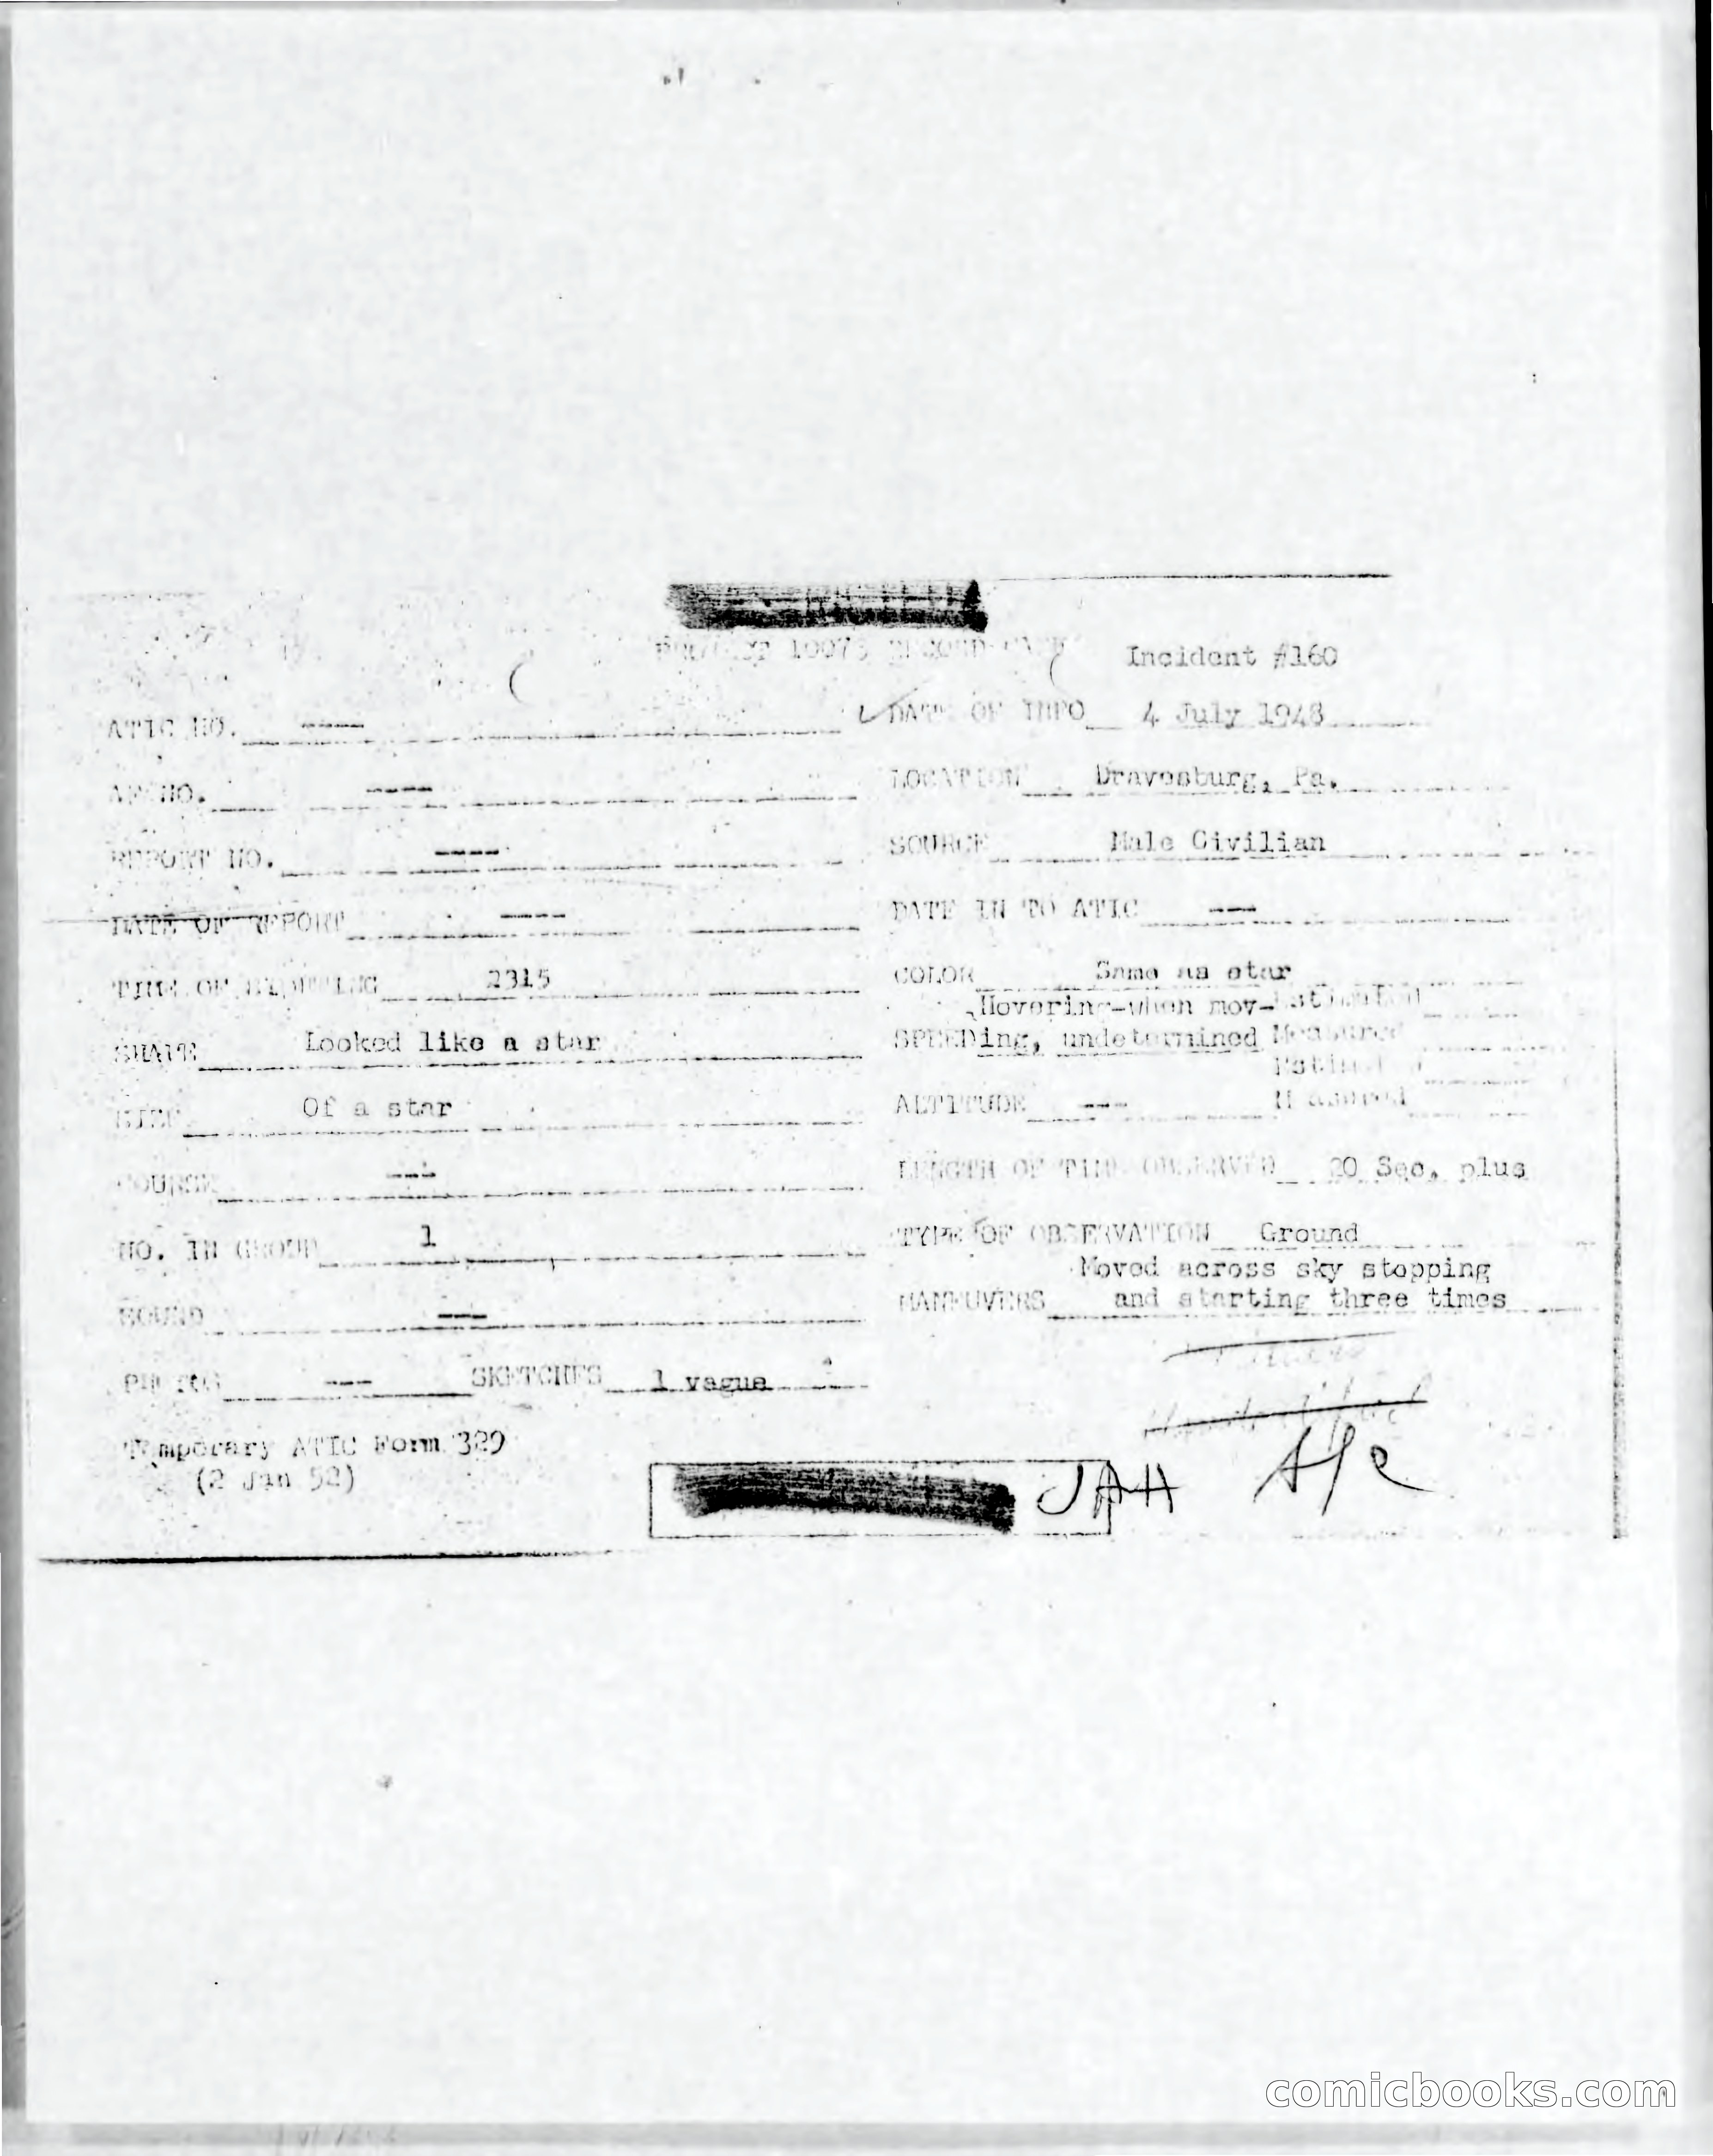 PROJECT 10073 RECORD CARD
Incident #160
ATIC NO. ----
DATE OF INFO 4 July 1948
AF NO. ----
LOCATION Dravosburg, Pa.
REPORT NO. ----
SOURCE Male Civilian
DATE OF REPORT ----
DATE IN TO ATIC ---
TIME OF SIGHTING 2315
COLOR Same as star
Hovering-when mov- Estimated
SHAPE Looked like a star
SPEED ing, undetermined Measured
Estimated
SIZE Of a star
ALTITUDE --- Measured
COURSE ---
LENGTH OF TIME OBSERVED 20 Sec. plus
NO. IN GROUP 1
TYPE OF OBSERVATION Ground
Moved across sky stopping
SOUND ---
MANEUVERS and starting three times
PHOTOS --- SKETCHES 1 vague
Temporary ATIC Form 329
(2 Jan 52)
JAH
comicbooks.com